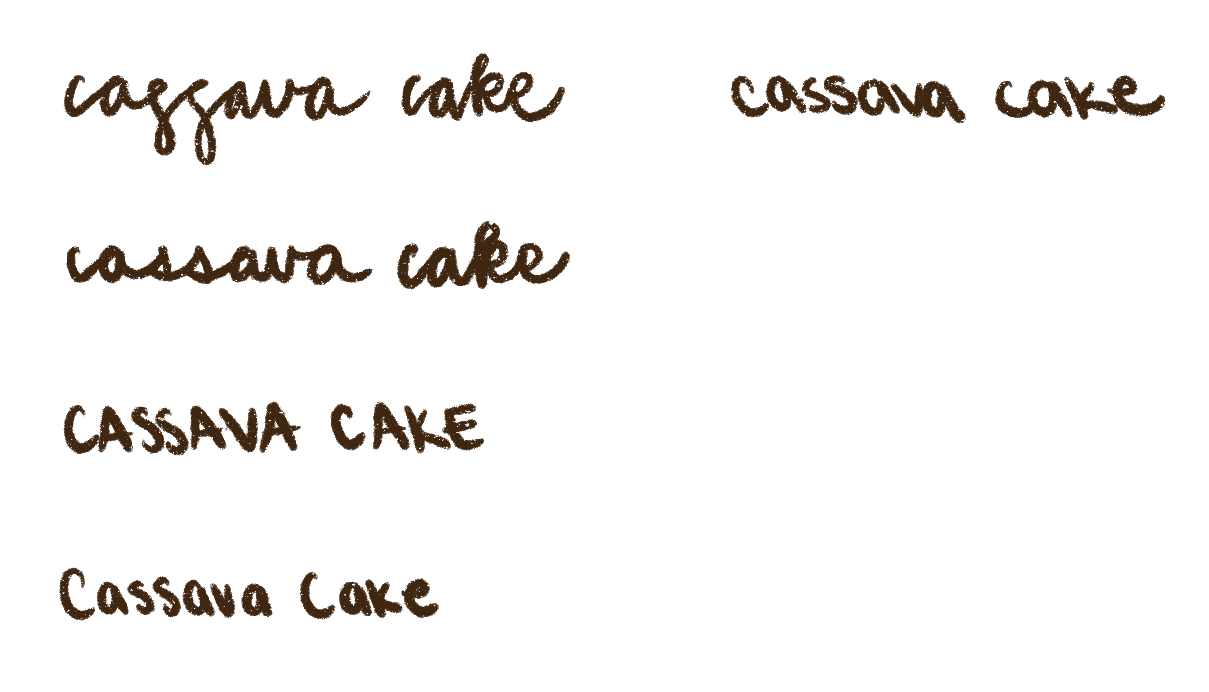 cassava cake
cassava cake
cassava cake
CASSAVA CAKE
Cassava Cake